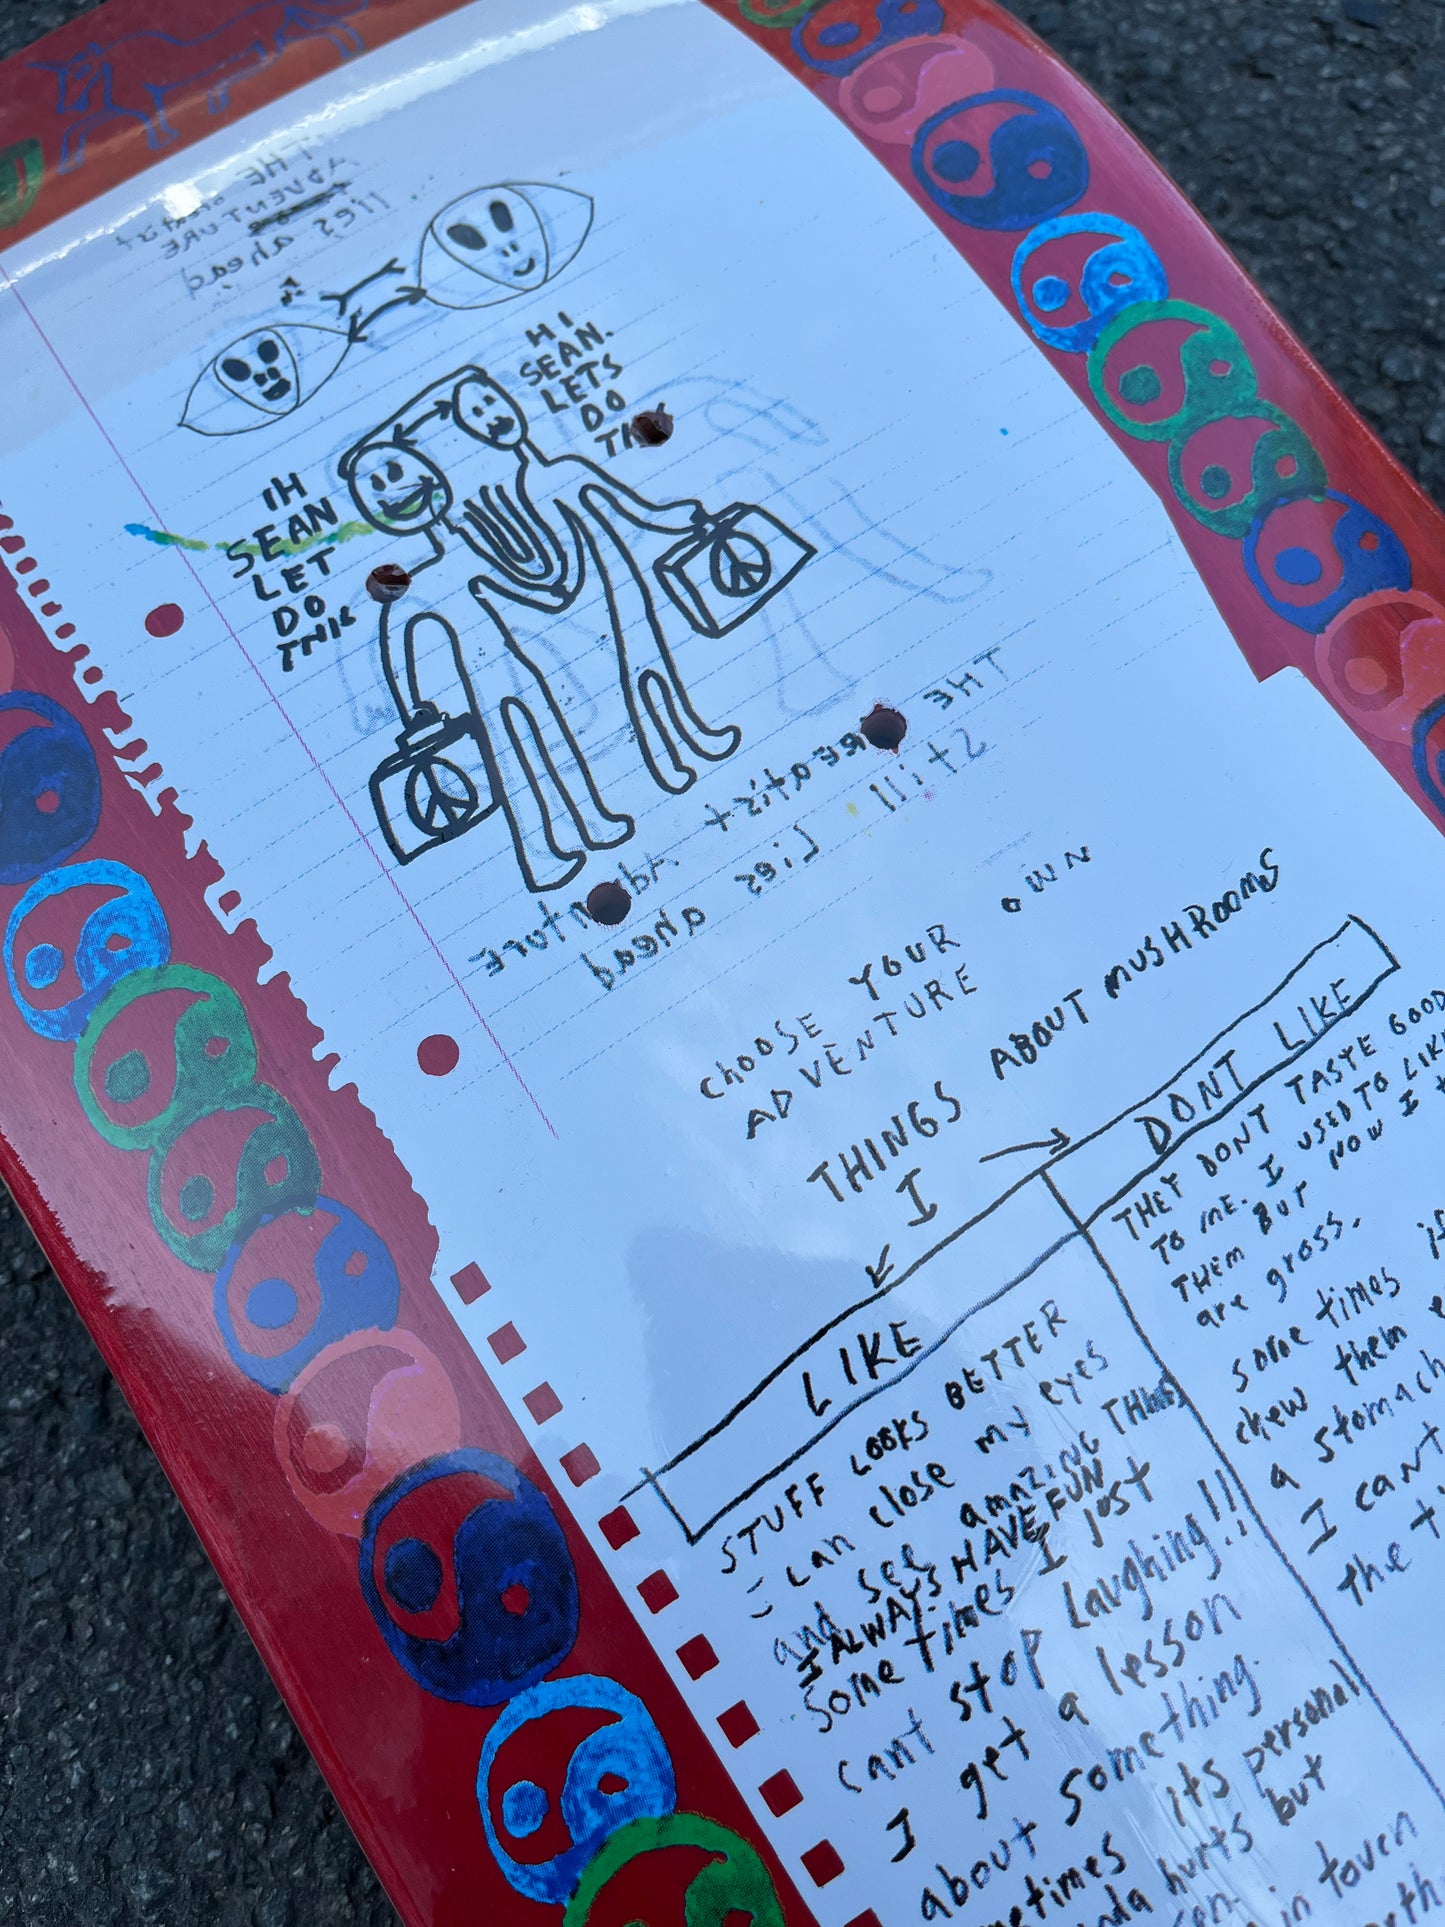 THE
ADVENTURE
lies ahead
HI
SEAN.
LETS
DO
IH
SEAN
LET
DO
THE
still lies ahead
CHOOSE YOUR OWN
ADVENTURE
THINGS ABOUT MUSHROOMS
I
DONT LIKE
THEY DONT TASTE GOOD
TO ME. I USED TO LIKE
THEM BUT NOW I
are gross.
some times if
chew them
a stomach
I cant
the
LIKE
STUFF LOOKS BETTER
I can close my eyes
and see amazing THINGS
I ALWAYS HAVE FUN
Some times I just
cant stop laughing!!
I get a lesson
about something.
its personal
hurts but
in